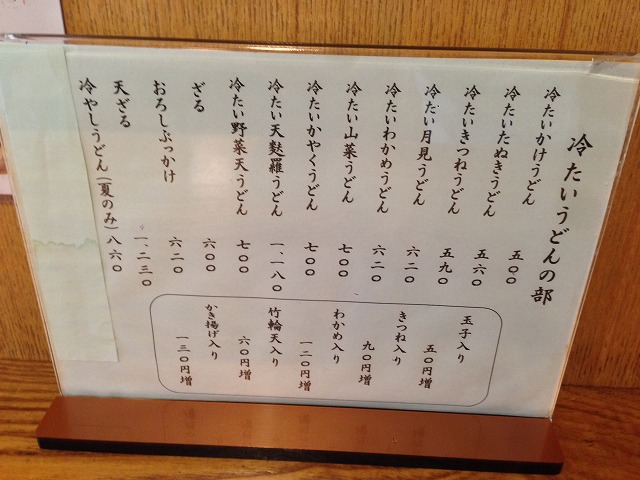 冷たいうどんの部
冷たいかけうどん 五〇〇
冷たいたぬきうどん 五六〇
冷たいきつねうどん 五九〇
冷たい月見うどん 六二〇
冷たいわかめうどん 六二〇
冷たい山菜うどん 七〇〇
冷たいかやくうどん 七〇〇
冷たい天麩羅うどん 一、一八〇
冷たい野菜天うどん 七〇〇
ざる 六〇〇
おろしぶっかけ 六二〇
天ざる 一、二三〇
冷やしうどん(夏のみ)八六〇
玉子入り 五〇円増
きつね入り 九〇円増
わかめ入り 一二〇円増
竹輪天入り 六〇円増
かき揚げ入り 一三〇円増